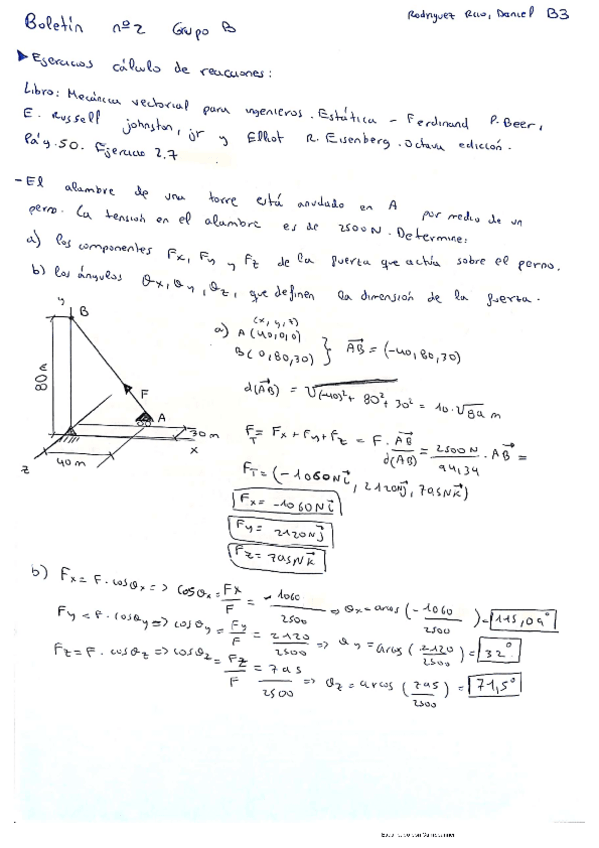 Rodriguez Rico, Daniel B3
Boletín nº2 Grupo B
▶ Ejercicios cálculo de reacciones:
Libro: Mecánica vectorial para ingenieros. Estática - Ferdinand P. Beer,
E. Russell Johnston, jr y Elliot R. Eisenberg. Octava edición.
Pág. 50. Ejercicio 2.7
- El alambre de una torre está anudado en A por medio de un
perno. La tensión en el alambre es de 2500N. Determine:
a) los componentes Fx, Fy y Fz de la fuerza que actúa sobre el perno.
b) los ángulos θx, θy, θz, que definen la dimensión de la fuerza.
y
B
80
F
A
30m
x
z
40m
(x, y, z)
a) A(40,0,0)
B(0,80,30) } AB = (-40, 80, 30)
d(AB) = √(-40)²+ 80²+ 30² = 10·√89 m
F_T = Fx + Fy + Fz = F · AB/d(AB) = 2500N/94,34 · AB =
F_T = (-1060N i, 2120N j, 795N k)
Fx = -1060N i
Fy = 2120N j
Fz = 795N k
b) Fx = F · cosθx => cosθx = Fx/F = -1060/2500 => θx = arcos(-1060/2500) = 115,09°
Fy = F · cosθy => cosθy = Fy/F = 2120/2500 => θy = arcos(2120/2500) = 32°
Fz = F · cosθz => cosθz = Fz/F = 795/2500 => θz = arcos(795/2500) = 71,5°